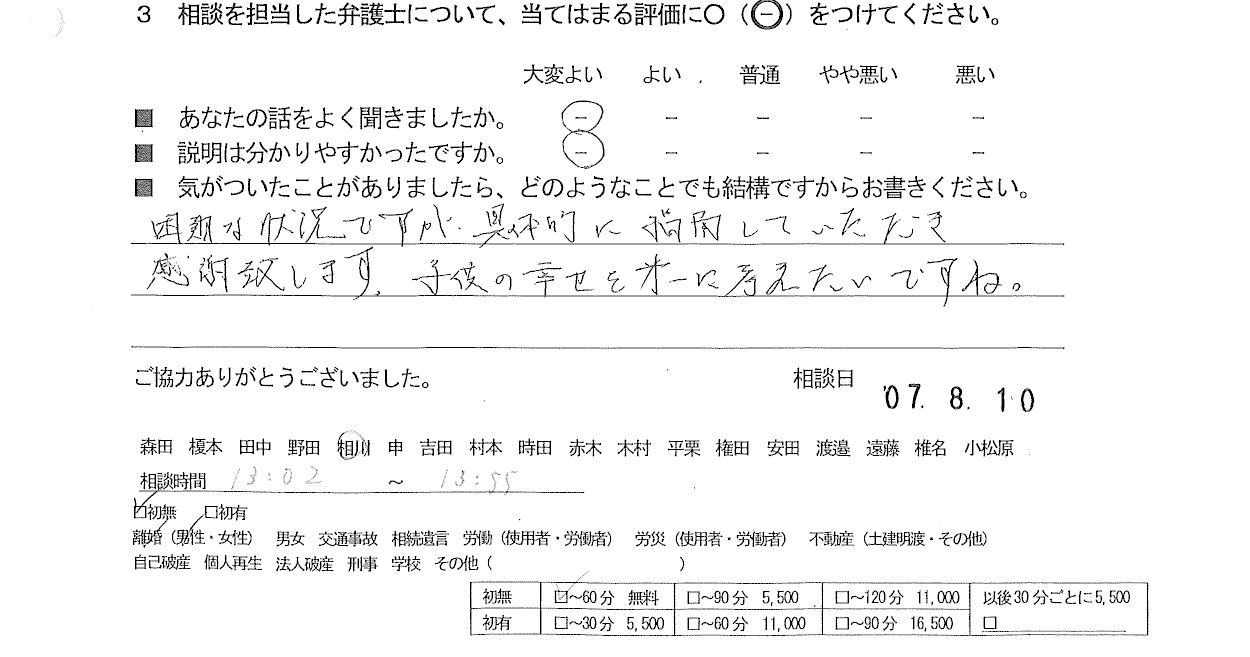 3 相談を担当した弁護士について、当てはまる評価に○（－）をつけてください。
大変よい よい 普通 やや悪い 悪い
■ あなたの話をよく聞きましたか。 － － － － －
■ 説明は分かりやすかったですか。 － － － － －
■ 気がついたことがありましたら、どのようなことでも結構ですからお書きください。
困難な状況ですが、具体的に指南していただき
感謝致します。子供の幸せを才一に考えたいですね。
ご協力ありがとうございました。 相談日 '07. 8. 10
森田 榎本 田中 野田 相川 申 吉田 村本 時田 赤木 木村 平栗 権田 安田 渡邉 遠藤 椎名 小松原
相談時間 13:02 ～ 13:55
☑初無 □初有
離婚（男性・女性） 男女 交通事故 相続遺言 労働（使用者・労働者） 労災（使用者・労働者） 不動産（土建明渡・その他）
自己破産 個人再生 法人破産 刑事 学校 その他（ ）
初無 ☑～60分 無料 □～90分 5,500 □～120分 11,000 以後30分ごとに5,500
初有 □～30分 5,500 □～60分 11,000 □～90分 16,500 □